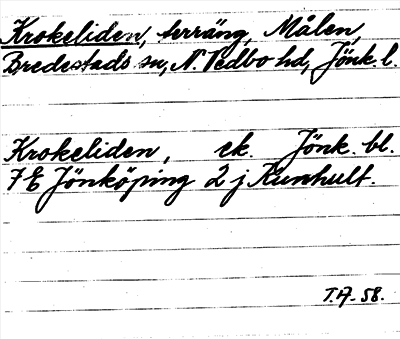 Krokeliden, terräng, Målen,
Bredestads sn, N. Vedbo hd, Jönk. l.
Krokeliden, ek. Jönk. bl.
7 E Jönköping 2 j Kunhult.
T.A. 58.